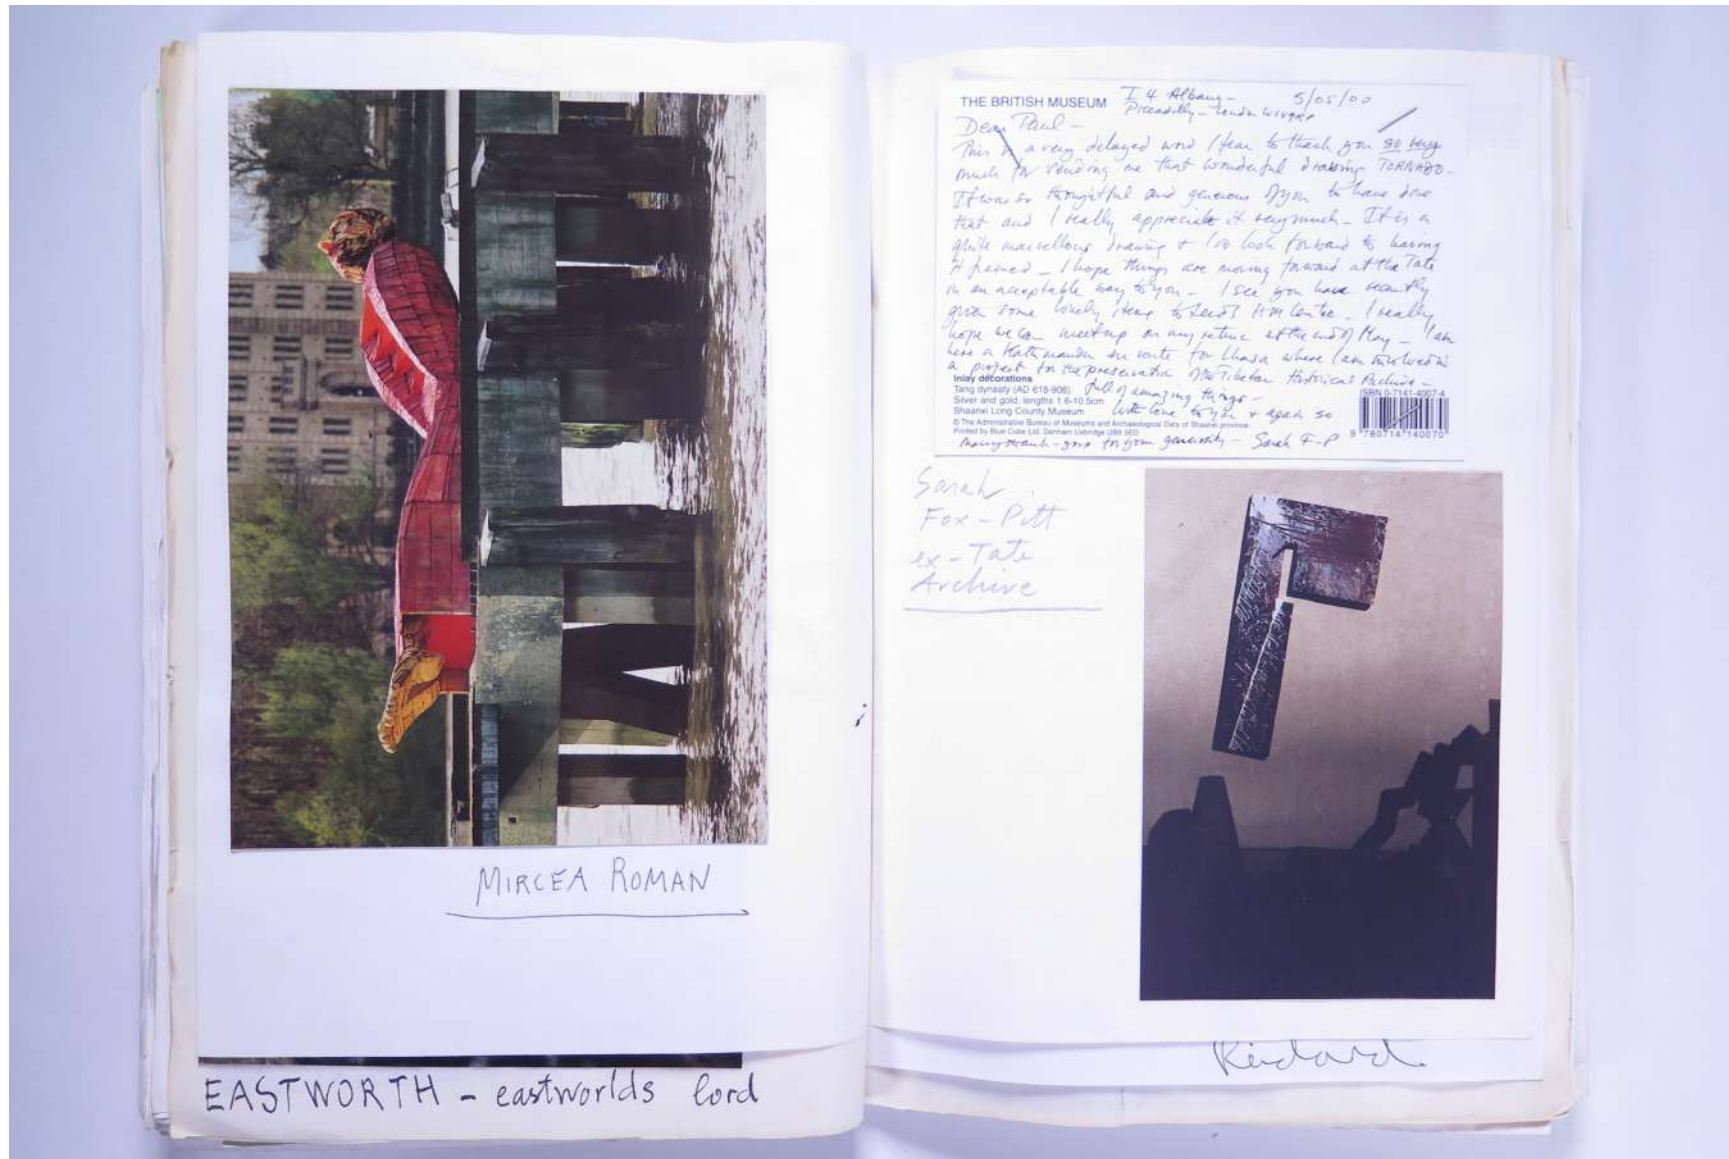 MIRCEA ROMAN
EASTWORTH - eastworlds lord
THE BRITISH MUSEUM
I 4 Albany -
5/05/00
Piccadilly - London
Dear Paul -
This is a very delayed word I fear to thank you so very
much for sending me that wonderful drawing TORNADO -
It was so thoughtful and generous of you to have done
that and I really appreciate it very much - It is a
quite marvellous drawing + look forward to having
it framed - I hope things are moving forward at the Tate
in an acceptable way to you - I see you have recently
given some lovely items to Leeds HM Centre - I really
hope we can meet up on my return at the end of May - I am
here in Kathmandu en route for Lhasa where I am involved in
a project for the preservation of the Tibetan Historical Archive -
full of amazing things -
Inlay decorations
Tang dynasty (AD 618-906)
Silver and gold, lengths 1.6-10.5cm
Shaanxi Long County Museum
With love to you + again so
© The Administrative Bureau of Museums and Archaeological Data of Shaanxi province.
Printed by Blue Cube Ltd. Denham Uxbridge UB9 5ED
many thank-yous for your generosity - Sarah F-P
ISBN 0-7141-4007-4
9 780714 140070
Sarah
Fox-Pitt
ex-Tate
Archive
Richard